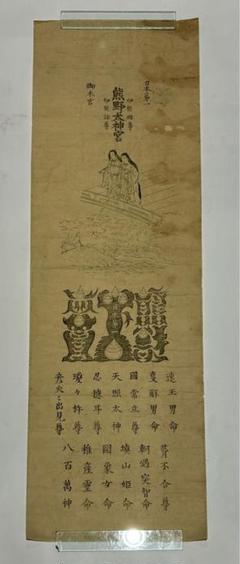 日本第一
伊弉冊尊
熊野大神宮
伊弉諾尊
御本宮
速玉男命
事解男命
國常立尊
天照太神
忍穂耳尊
瓊々杵尊
彦火々出見尊
葺不合尊
軻遇突智命
埴山姫命
罔象女命
稚産霊命
八百萬神